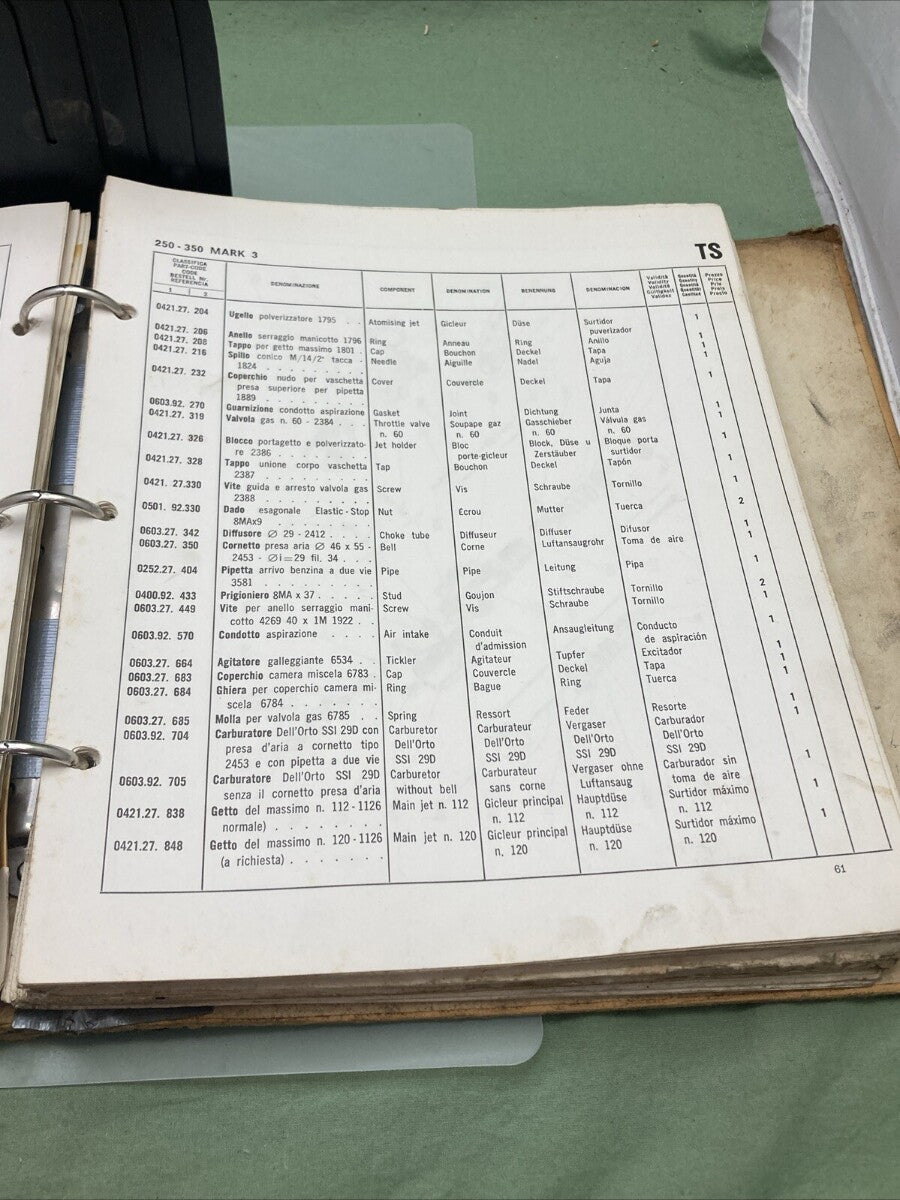 250 - 350 MARK 3 TS
CLASSIFICA PART-CODE CODE BESTELL Nr. REFERENCIA 1 2 DENOMINAZIONE COMPONENT DENOMINATION BENENNUNG DENOMINACION Validità Validity Validité Gültigkeit Validez Prezzo Price Prix Preis Precio
0421.27. 204 Ugello polverizzatore 1795 . . Atomising jet Gicleur Düse Surtidor 1
puverizador
0421.27. 206 Anello serraggio manicotto 1796 Ring Anneau Ring Anillo 1
0421.27. 208 Tappo per getto massimo 1801 . Cap Bouchon Deckel Tapa 1
0421.27. 216 Spillo conico M/14/2ª tacca - Needle Aiguille Nadel Aguja 1
1824 . . . . . . . . .
0421.27. 232 Coperchio nudo per vaschetta Cover Couvercle Deckel Tapa 1
presa superiore per pipetta
1889 . . . . . . . . .
0603.92. 270 Guarnizione condotto aspirazione Gasket Joint Dichtung Junta 1
0421.27. 319 Valvola gas n. 60 - 2384 . . . Throttle valve Soupape gaz Gasschieber Válvula gas 1
n. 60 n. 60 n. 60 n. 60
0421.27. 326 Blocco portagetto e polverizzato- Jet holder Bloc Block, Düse u Bloque porta 1
re 2386 . . . . . . . . porte-gicleur Zerstäuber surtidor
0421.27. 328 Tappo unione corpo vaschetta Tap Bouchon Deckel Tapón 1
2387 . . . . . . . . .
0421. 27.330 Vite guida e arresto valvola gas Screw Vis Schraube Tornillo 1
2388 . . . . . . . . .
0501. 92.330 Dado esagonale Elastic-Stop Nut Ecrou Mutter Tuerca 2
8MAx9 . . . . . . . .
0603.27. 342 Diffusore ∅ 29 - 2412 . . . . Choke tube Diffuseur Diffuser Difusor 1
0603.27. 350 Cornetto presa aria ∅ 46 x 55 - Bell Corne Luftansaugrohr Toma de aire 1
2453 - ∅i=29 fil. 34 . . .
0252.27. 404 Pipetta arrivo benzina a due vie Pipe Pipe Leitung Pipa 1
3581 . . . . . . . . .
0400.92. 433 Prigioniero 8MA x 37 . . . . . Stud Goujon Stiftschraube Tornillo 2
0603.27. 449 Vite per anello serraggio mani- Screw Vis Schraube Tornillo 1
cotto 4269 40 x 1M 1922 . .
0603.92. 570 Condotto aspirazione . . . . Air intake Conduit Ansaugleitung Conducto 1
d'admission de aspiración
0603.27. 664 Agitatore galleggiante 6534 . . Tickler Agitateur Tupfer Excitador 1
0603.27. 683 Coperchio camera miscela 6783 . Cap Couvercle Deckel Tapa 1
0603.27. 684 Ghiera per coperchio camera mi- Ring Bague Ring Tuerca 1
scela 6784 . . . . . . .
0603.27. 685 Molla per valvola gas 6785 . . Spring Ressort Feder Resorte 1
0603.92. 704 Carburatore Dell'Orto SSI 29D con Carburetor Carburateur Vergaser Carburador 1
presa d'aria a cornetto tipo Dell'Orto Dell'Orto Dell'Orto Dell'Orto
2453 e con pipetta a due vie SSI 29D SSI 29D SSI 29D SSI 29D
0603.92. 705 Carburatore Dell'Orto SSI 29D Carburetor Carburateur Vergaser ohne Carburador sin 1
senza il cornetto presa d'aria without bell sans corne Luftansaug toma de aire
0421.27. 838 Getto del massimo n. 112-1126 Main jet n. 112 Gicleur principal Hauptdüse Surtidor máximo 1
normale) . . . . . . . n. 112 n. 112 n. 112
0421.27. 848 Getto del massimo n. 120-1126 Main jet n. 120 Gicleur principal Hauptdüse Surtidor máximo 1
(a richiesta) . . . . . . n. 120 n. 120 n. 120
61